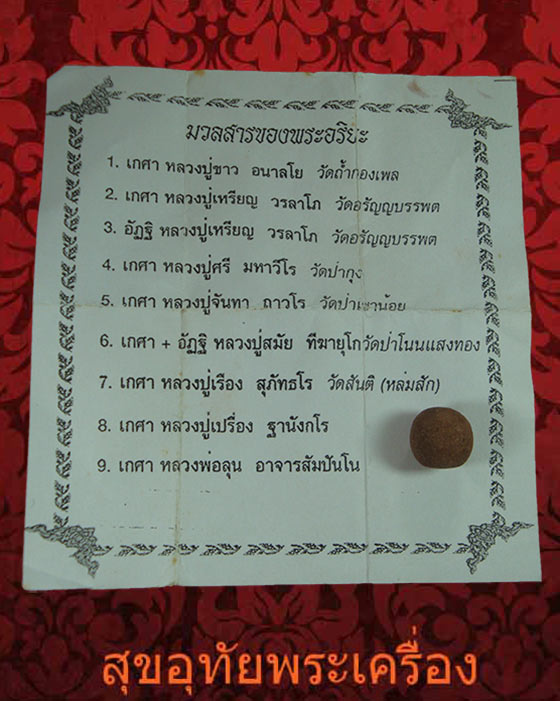 มวลสารของพระอริยะ
1. เกศา หลวงปู่ขาว อนาลโย วัดถ้ำกองเพล
2. เกศา หลวงปู่เหรียญ วรลาโภ วัดอรัญญบรรพต
3. อัฏฐิ หลวงปู่เหรียญ วรลาโภ วัดอรัญญบรรพต
4. เกศา หลวงปู่ศรี มหาวีโร วัดป่ากุง
5. เกศา หลวงปู่จันทา ถาวโร วัดป่าเขาน้อย
6. เกศา + อัฏฐิ หลวงปู่สมัย ทีฆายุโกวัดป่าโนนแสงทอง
7. เกศา หลวงปู่เรือง สุภัทธโร วัดสันติ (หล่มสัก)
8. เกศา หลวงปู่เปรื่อง ฐานังกโร
9. เกศา หลวงพ่อลุน อาจารสัมปันโน
สุขอุทัยพระเครื่อง